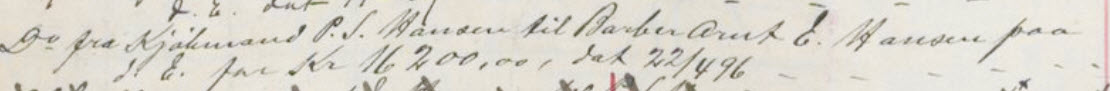 d. E. dat
Do fra Kjøbmand P. S. Hansen til Barber Arnt E. Hansen paa
d. E. for Kr 16 200,00, dat 22/4 96